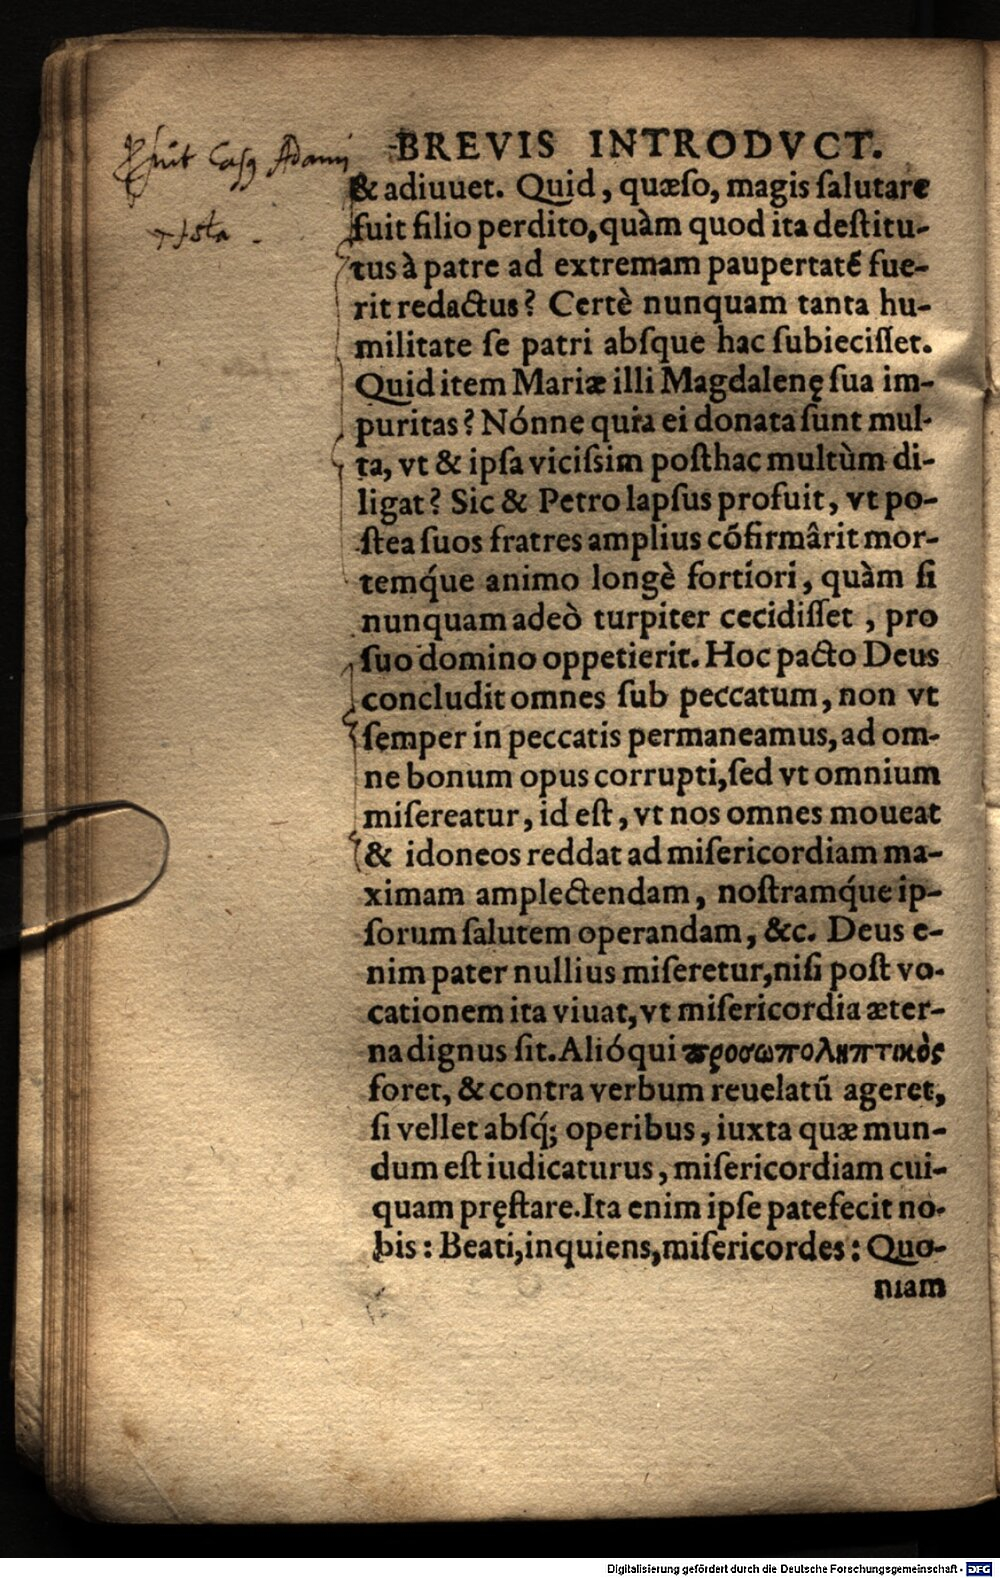 BREVIS INTRODVCT.
fuit Adami
ista
& adiuuet. Quid, quæso, magis ſalutare
fuit filio perdito, quàm quod ita deſtitu-
tus à patre ad extremam paupertatẽ fue-
rit redactus? Certè nunquam tanta hu-
militate ſe patri abſque hac ſubieciſſet.
Quid item Mariæ illi Magdalenę ſua im-
puritas? Nónne quia ei donata ſunt mul-
ta, vt & ipſa viciſsim poſthac multùm di-
ligat? Sic & Petro lapſus profuit, vt po-
ſtea ſuos fratres amplius cõfirmârit mor-
temq́ue animo longè fortiori, quàm ſi
nunquam adeò turpiter cecidiſſet, pro
ſuo domino oppetierit. Hoc pacto Deus
concludit omnes ſub peccatum, non vt
ſemper in peccatis permaneamus, ad om-
ne bonum opus corrupti, ſed vt omnium
miſereatur, id eſt, vt nos omnes moueat
& idoneos reddat ad miſericordiam ma-
ximam amplectendam, noſtramq́ue ip-
ſorum ſalutem operandam, &c. Deus e-
nim pater nullius miſeretur, niſi poſt vo-
cationem ita viuat, vt miſericordia æter-
na dignus ſit. Alióqui προσωποληπτικὸς
foret, & contra verbum reuelatũ ageret,
ſi vellet abſq́; operibus, iuxta quæ mun-
dum eſt iudicaturus, miſericordiam cui-
quam pręſtare. Ita enim ipſe patefecit no-
bis: Beati, inquiens, miſericordes: Quo-
niam
Digitalisierung gefördert durch die Deutsche Forschungsgemeinschaft - DFG